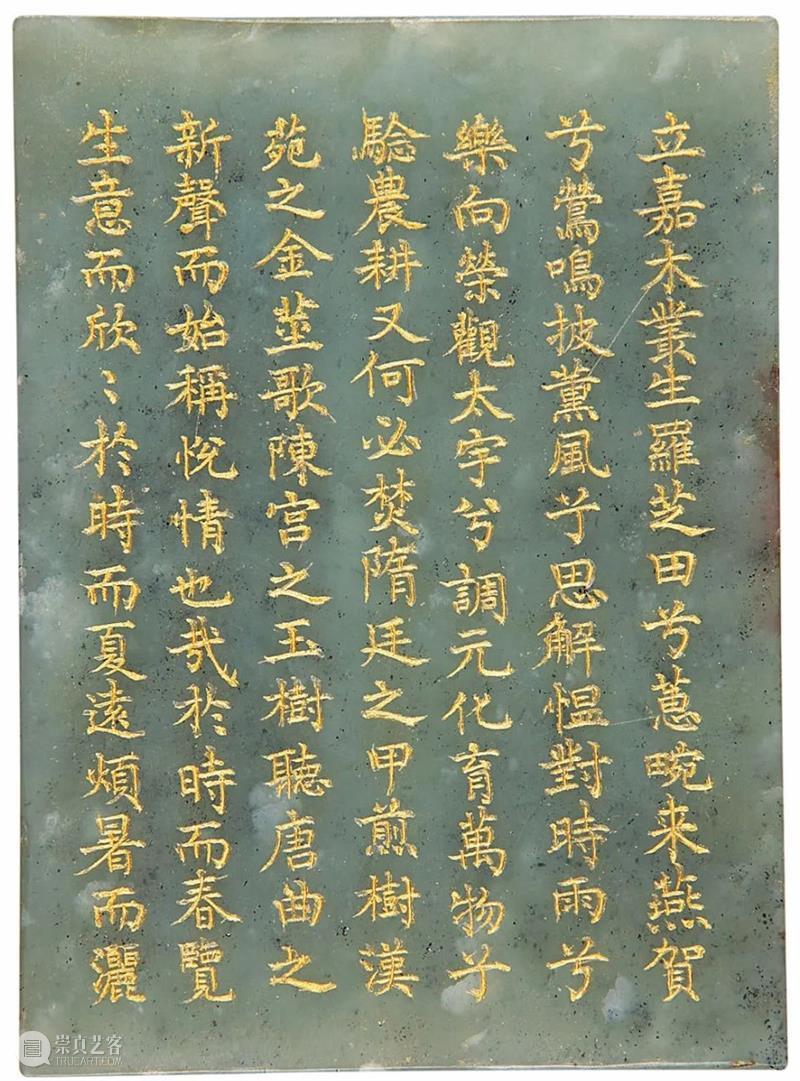 立嘉木叢生羅芝田兮蕙畹来燕賀
兮鶯鳴披薰風兮思解愠對時雨兮
樂向榮觀太宇兮調元化育萬物子
驗農耕又何必焚隋廷之甲煎樹漢
苑之金莖歌陳宫之玉樹聽唐曲之
新聲而始稱悦情也哉於時而春覽
生意而欣〻於時而夏遠煩暑而灑
崇真艺客
TRUEART.COM